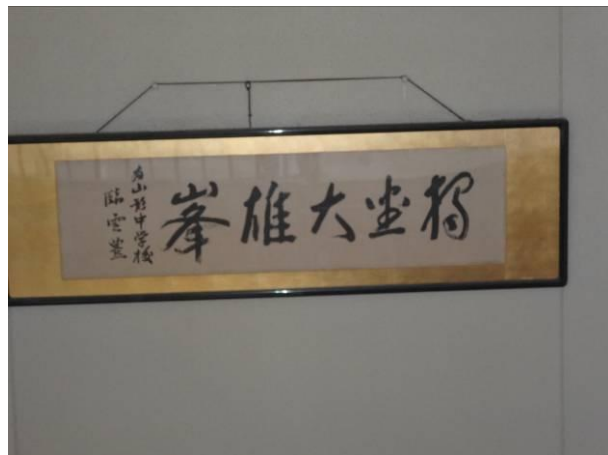 獨坐大雄峯
為山形中学校
臨雲叢